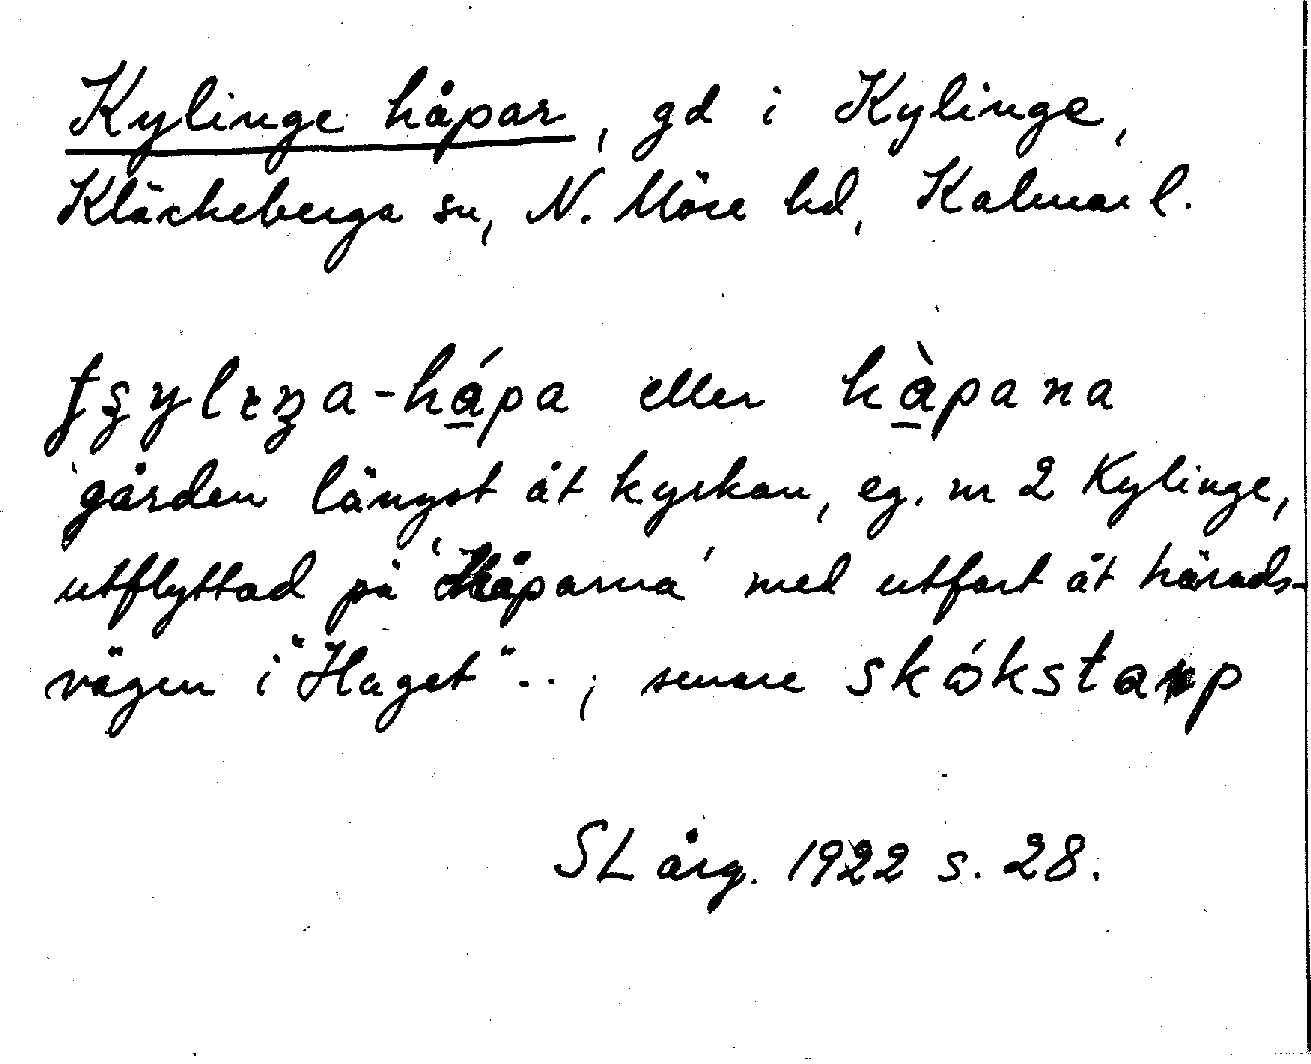 Kylinge håpar, gd i Kylinge,
Kläckeberga sn, N. Möre hd, Kalmar l.
hápa eller hàpana
gården längst åt kyrkan, eg. nr 2 Kylinge,
utflyttad på 'Håparna' med utfart åt härads-
vägen i "Haget" ..; senare skókstarp
SL årg. 1922 s. 28.